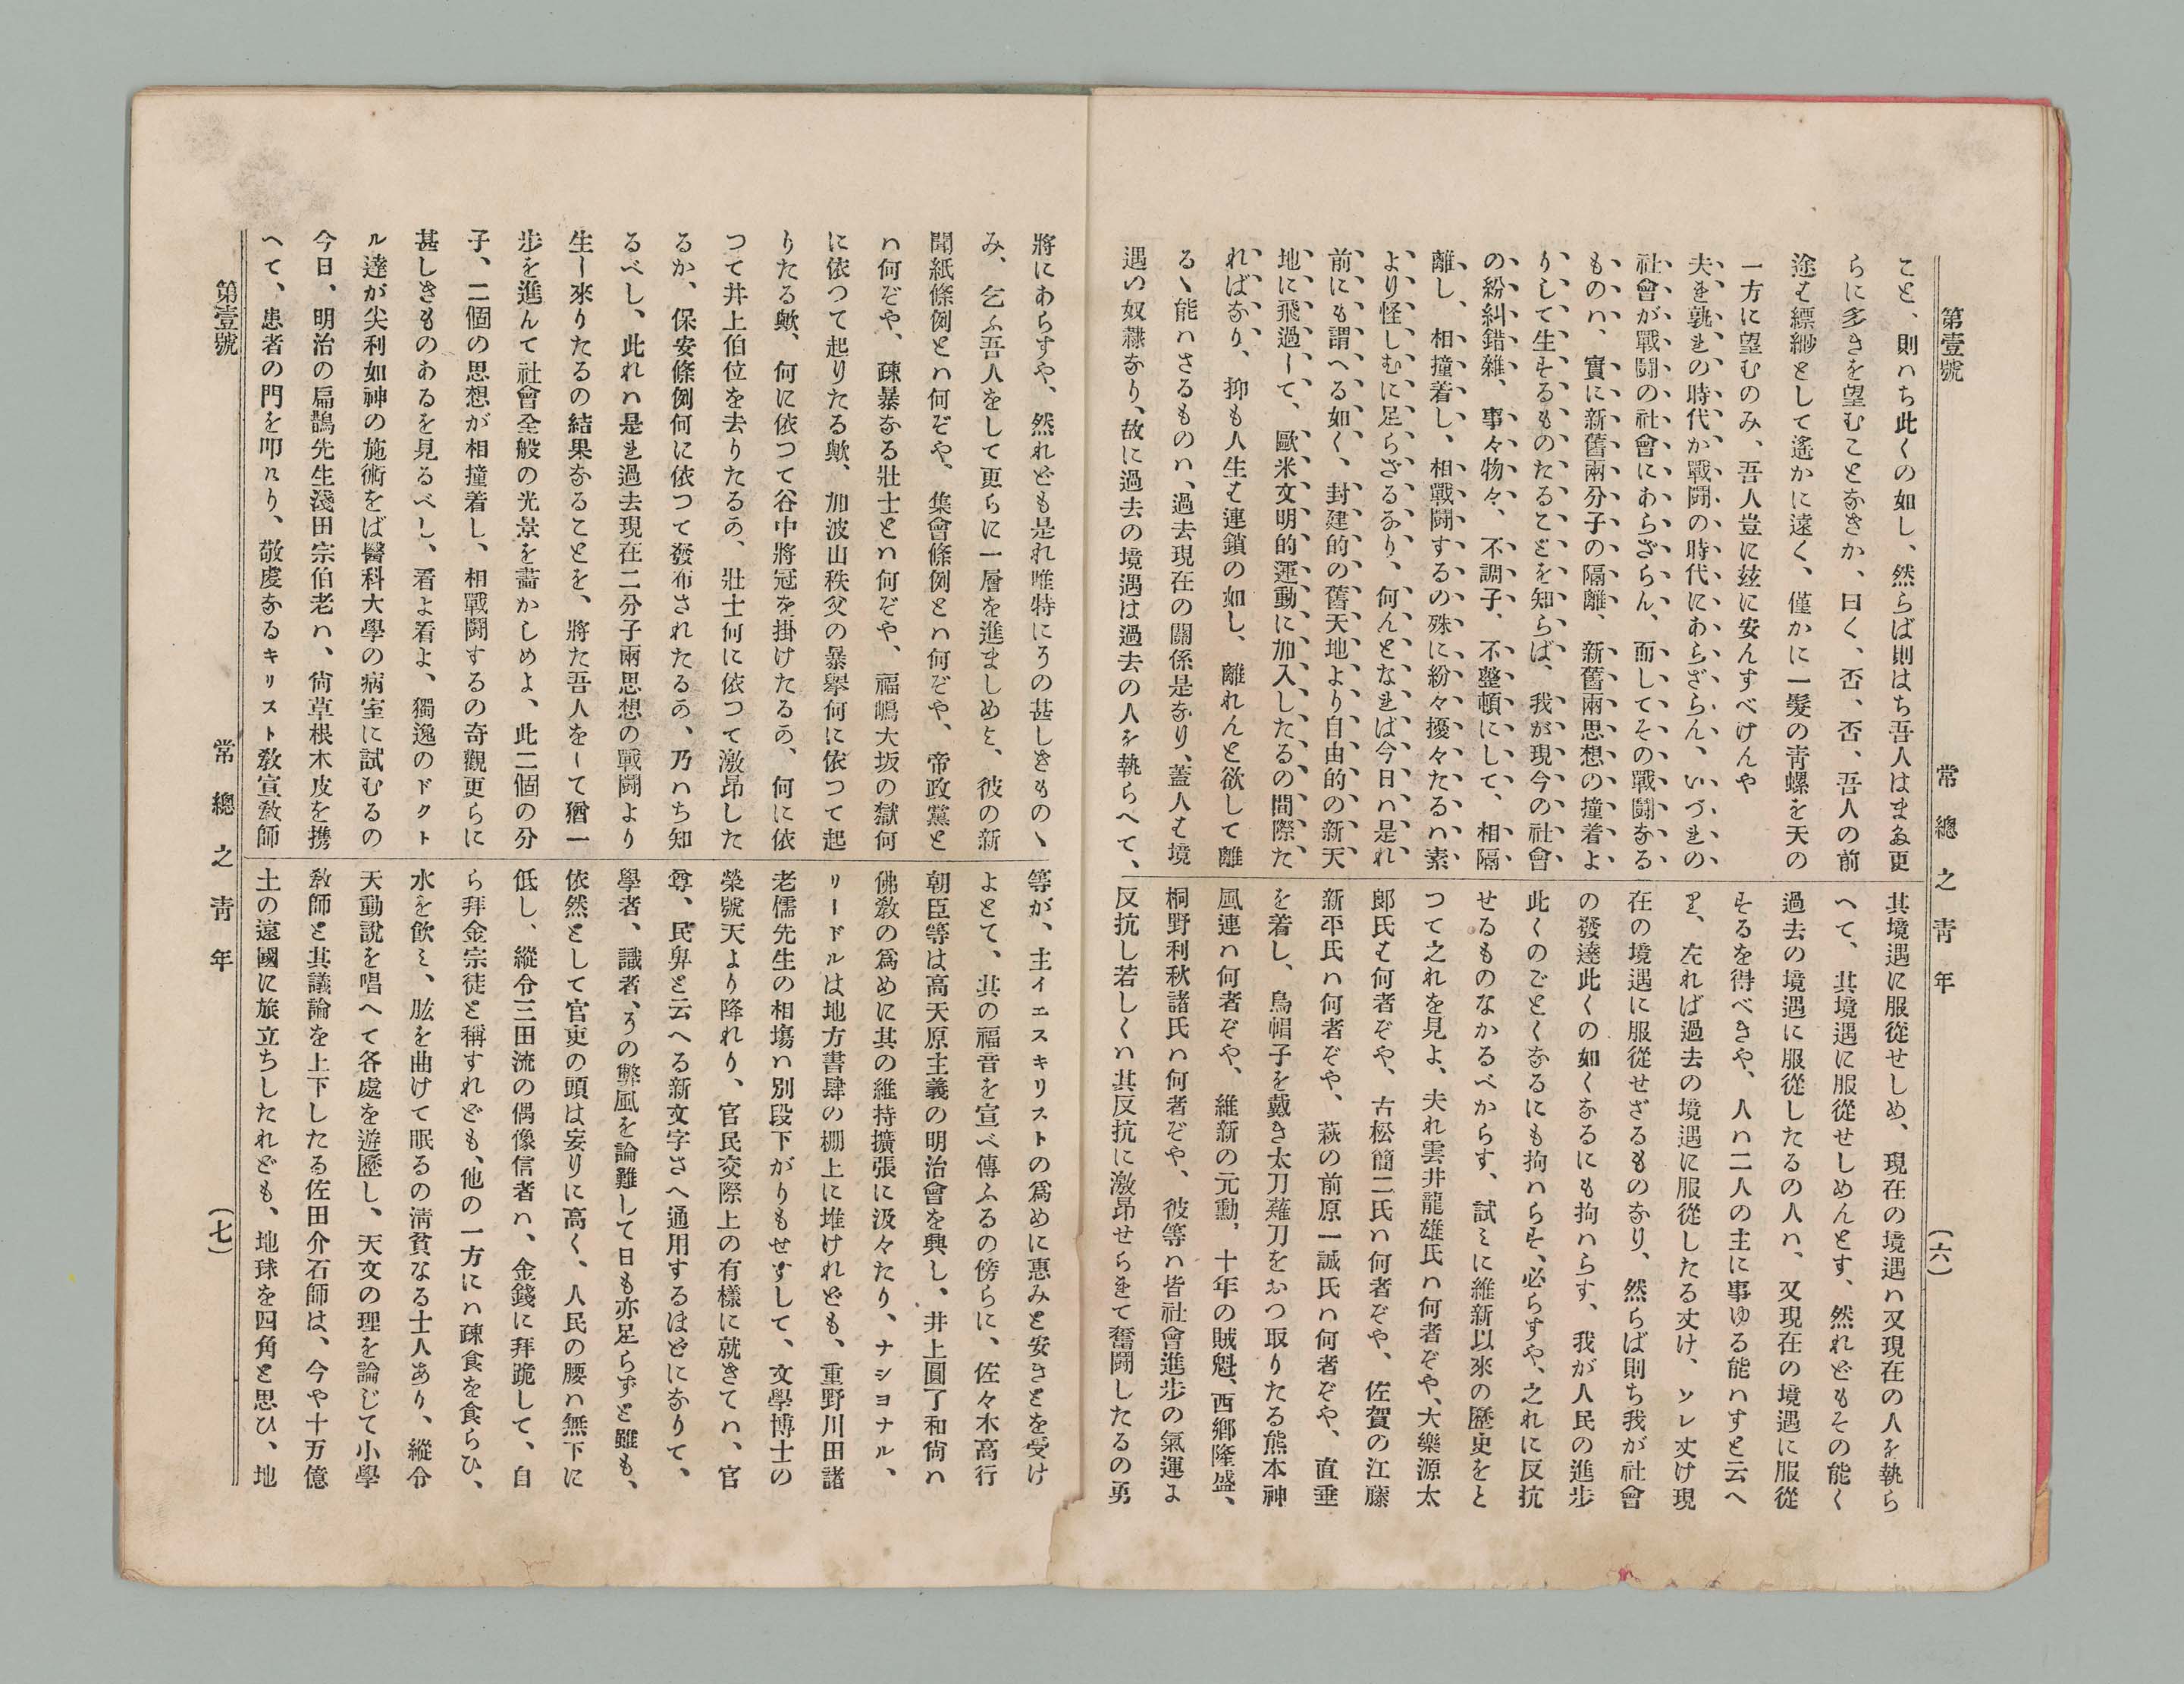 第壹號
常總之靑年
(六)
こと、則ハち此くの如し、然らば則はち吾人はまた更
らに多きを望むことなきか、曰く、否、否、吾人の前
途は縹緲として遙かに遠く、僅かに一髮の靑螺を天の
一方に望むのみ、吾人豈に玆に安んすべけんや
夫れ孰れの時代か戰鬪の時代にあらざらん、いづれの
社會が戰鬪の社會にあらざらん、而してその戰鬪なる
ものハ、實に新舊兩分子の隔離、新舊兩思想の撞着よ
りして生するものたることを知らば、我が現今の社會
の紛糾錯雜、事々物々、不調子、不整頓にして、相隔
離し、相撞着し、相戰鬪するの殊に紛々擾々たるハ素
より怪しむに足らざるなり、何んとなれば今日ハ是れ
前にも謂へる如く、封建的の舊天地より自由的の新天
地に飛過して、歐米文明的運動に加入したるの間際た
ればなり、抑も人生は連鎖の如し、離れんと欲して離
るゝ能ハさるものハ、過去現在の關係是なり、蓋人は境
遇い奴隸なり、故に過去の境遇は過去の人を執らへて、
其境遇に服從せしめ、現在の境遇ハ又現在の人を執ら
へて、其境遇に服從せしめんとす、然れどもその能く
過去の境遇に服從したるの人ハ、又現在の境遇に服從
するを得べきや、人ハ二人の主に事ゆる能ハすと云へ
り、左れば過去の境遇に服從したる丈け、ソレ丈け現
在の境遇に服從せざるものなり、然らば則ち我が社會
の發達此くの如くなるにも拘ハらす、我が人民の進步
此くのごとくなるにも拘ハらす、必らすや、之れに反抗
せるものなかるべからす、試ミに維新以來の歷史をと
つて之れを見よ、夫れ雲井龍雄氏ハ何者ぞや、大樂源太
郞氏は何者ぞや、古松簡二氏ハ何者ぞや、佐賀の江藤
新平氏ハ何者ぞや、萩の前原一誠氏ハ何者ぞや、直垂
を着し、烏帽子を戴き太刀薙刀をおつ取りたる熊本神
風連ハ何者ぞや、維新の元勳、十年の賊魁、西鄕隆盛、
桐野利秋諸氏ハ何者ぞや、彼等ハ皆社會進步の氣運よ
反抗し若しくハ其反抗に激昂せられて奮鬪したるの勇
將にあらすや、然れども是れ唯特にその甚しきものゝ
み、乞ふ吾人をして更らに一層を進ましめよ、彼の新
聞紙條例とハ何ぞや、集會條例とハ何ぞや、帝政黨と
ハ何ぞや、疎暴なる壯士とハ何ぞや、福嶋大坂の獄何
に依つて起りたる歟、加波山秩父の暴擧何に依つて起
りたる歟、何に依つて谷中將冠を掛けたるの、何に依
つて井上伯位を去りたるの、壯士何に依つて激昂した
るか、保安條例何に依つて發布されたるの、乃ハち知
るべし、此れハ是れ過去現在二分子兩思想の戰鬪より
生し來りたるの結果なることを、將た吾人をして猶一
步を進んて社會全般の光景を畫かしめよ、此二個の分
子、二個の思想が相撞着し、相戰鬪するの奇觀更らに
甚しきものあるを見るべし、看よ看よ、獨逸のドクト
ル達が尖利如神の施術をば醫科大學の病室に試むるの
今日、明治の扁鵲先生淺田宗伯老ハ、尙草根木皮を携
へて、患者の門を叩けり、敬虔なるキリスト敎宣敎師
等が、主イエスキリストの爲めに惠みと安きとを受け
よとて、其の福音を宣べ傳ふるの傍らに、佐々木高行
朝臣等は高天原主義の明治會を興し、井上圓了和尙ハ
佛敎の爲めに其の維持擴張に汲々たり、ナシヨナル、
リードルは地方書肆の棚上に堆けれども、重野川田諸
老儒先生の相塲ハ別段下がりもせすして、文學博士の
榮號天より降れり、官民交際上の有樣に就きてハ、官
尊、民卑と云へる新文字さへ通用するほどになりて、
學者、識者、その弊風を論難して日も亦足らずと雖も、
依然として官吏の頭は妄りに高く、人民の腰ハ無下に
低し、縱令三田流の偶像信者ハ、金錢に拜跪して、自
ら拜金宗徒と稱すれども、他の一方にハ疎食を食らひ、
水を飮ミ、肱を曲けて眠るの淸貧なる士人あり、縱令
天動說を唱へて各處を遊歷し、天文の理を論じて小學
敎師と其議論を上下したる佐田介石師は、今や十万億
土の遠國に旅立ちしたれども、地球を四角と思ひ、地
第壹號
常總之靑年
(七)